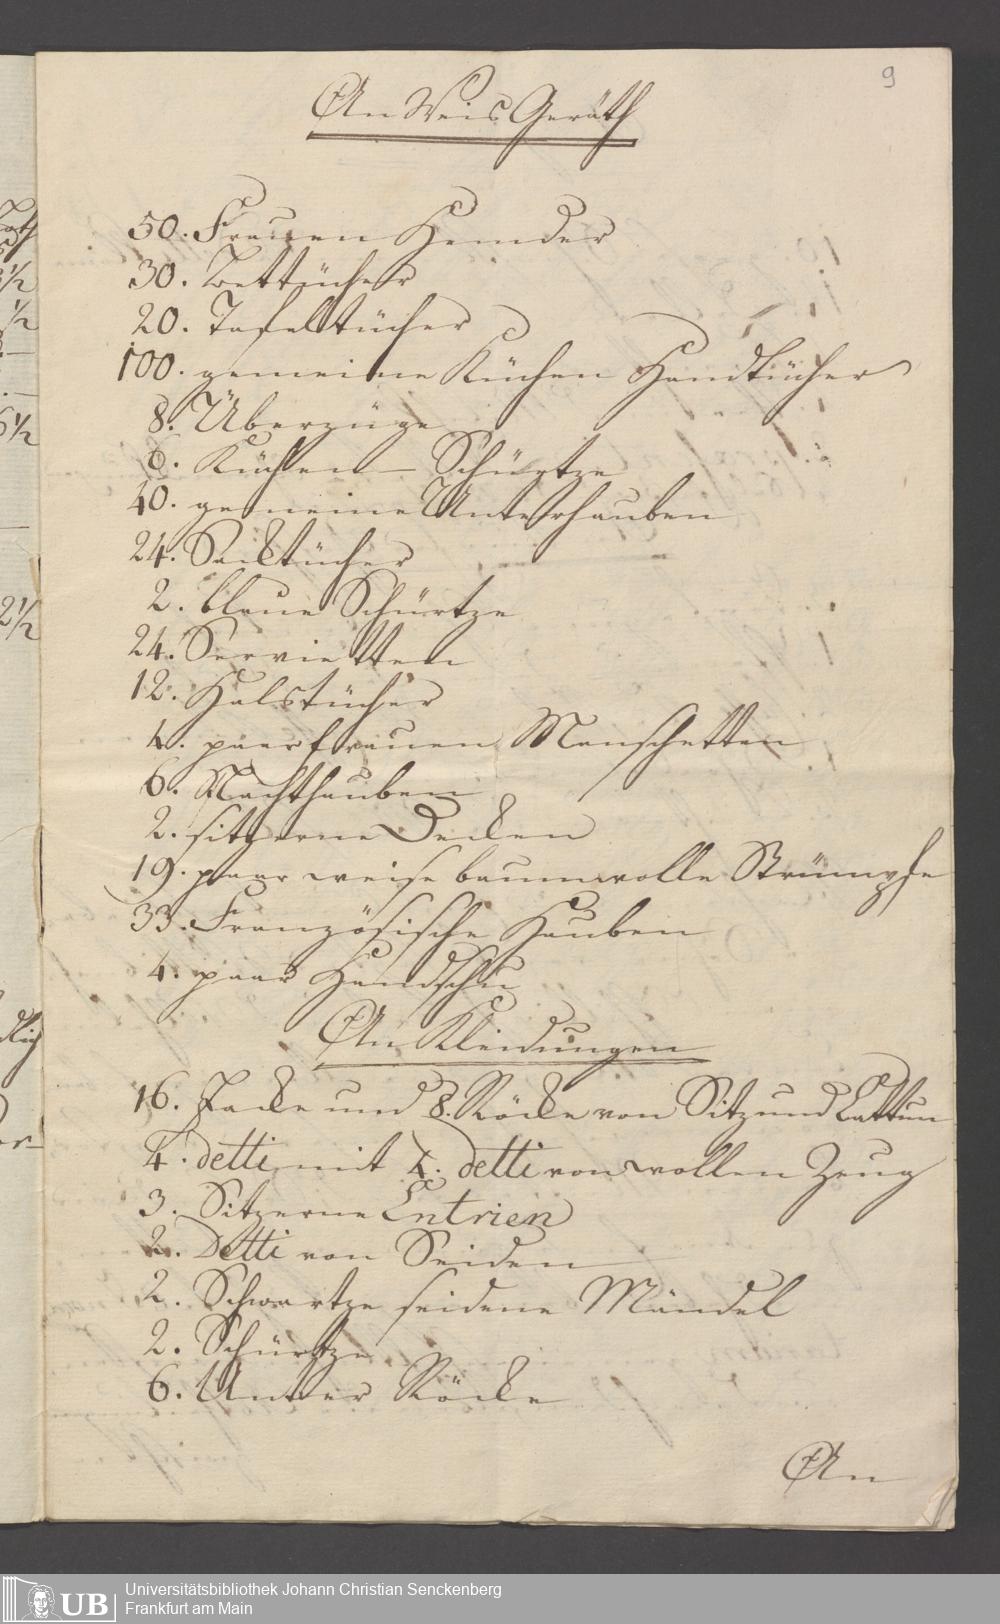 9
An Weis Geräth
50. Frauen Hemder
30. Bettücher
20. Tafeltücher
100. gemeine Küchen Handtücher
8. Überzüge
6. Küchen-Schürtze
40. gemeine Unterhauben
24. Sacktücher
2. blaue Schürtze
24. Servietten
12. Halstücher
4. paar frauen Manschetten
6. Nachthauben
2. sitzerne Decken
19. paar weise baumwolle Strümpfe
33. Französische Hauben
4. paar Handschu
An Kleidungen
16. Jacke und 8. Röcke von Sitz und Cattun
4. detti mit 4. detti von wollen Zeug
3. Sitzerne Entrien
2. Detti von Seiden
2. Schwartze seidene Mändel
2. Schürtze
6. Unter Röcke
An
UB
Universitätsbibliothek Johann Christian Senckenberg
Frankfurt am Main